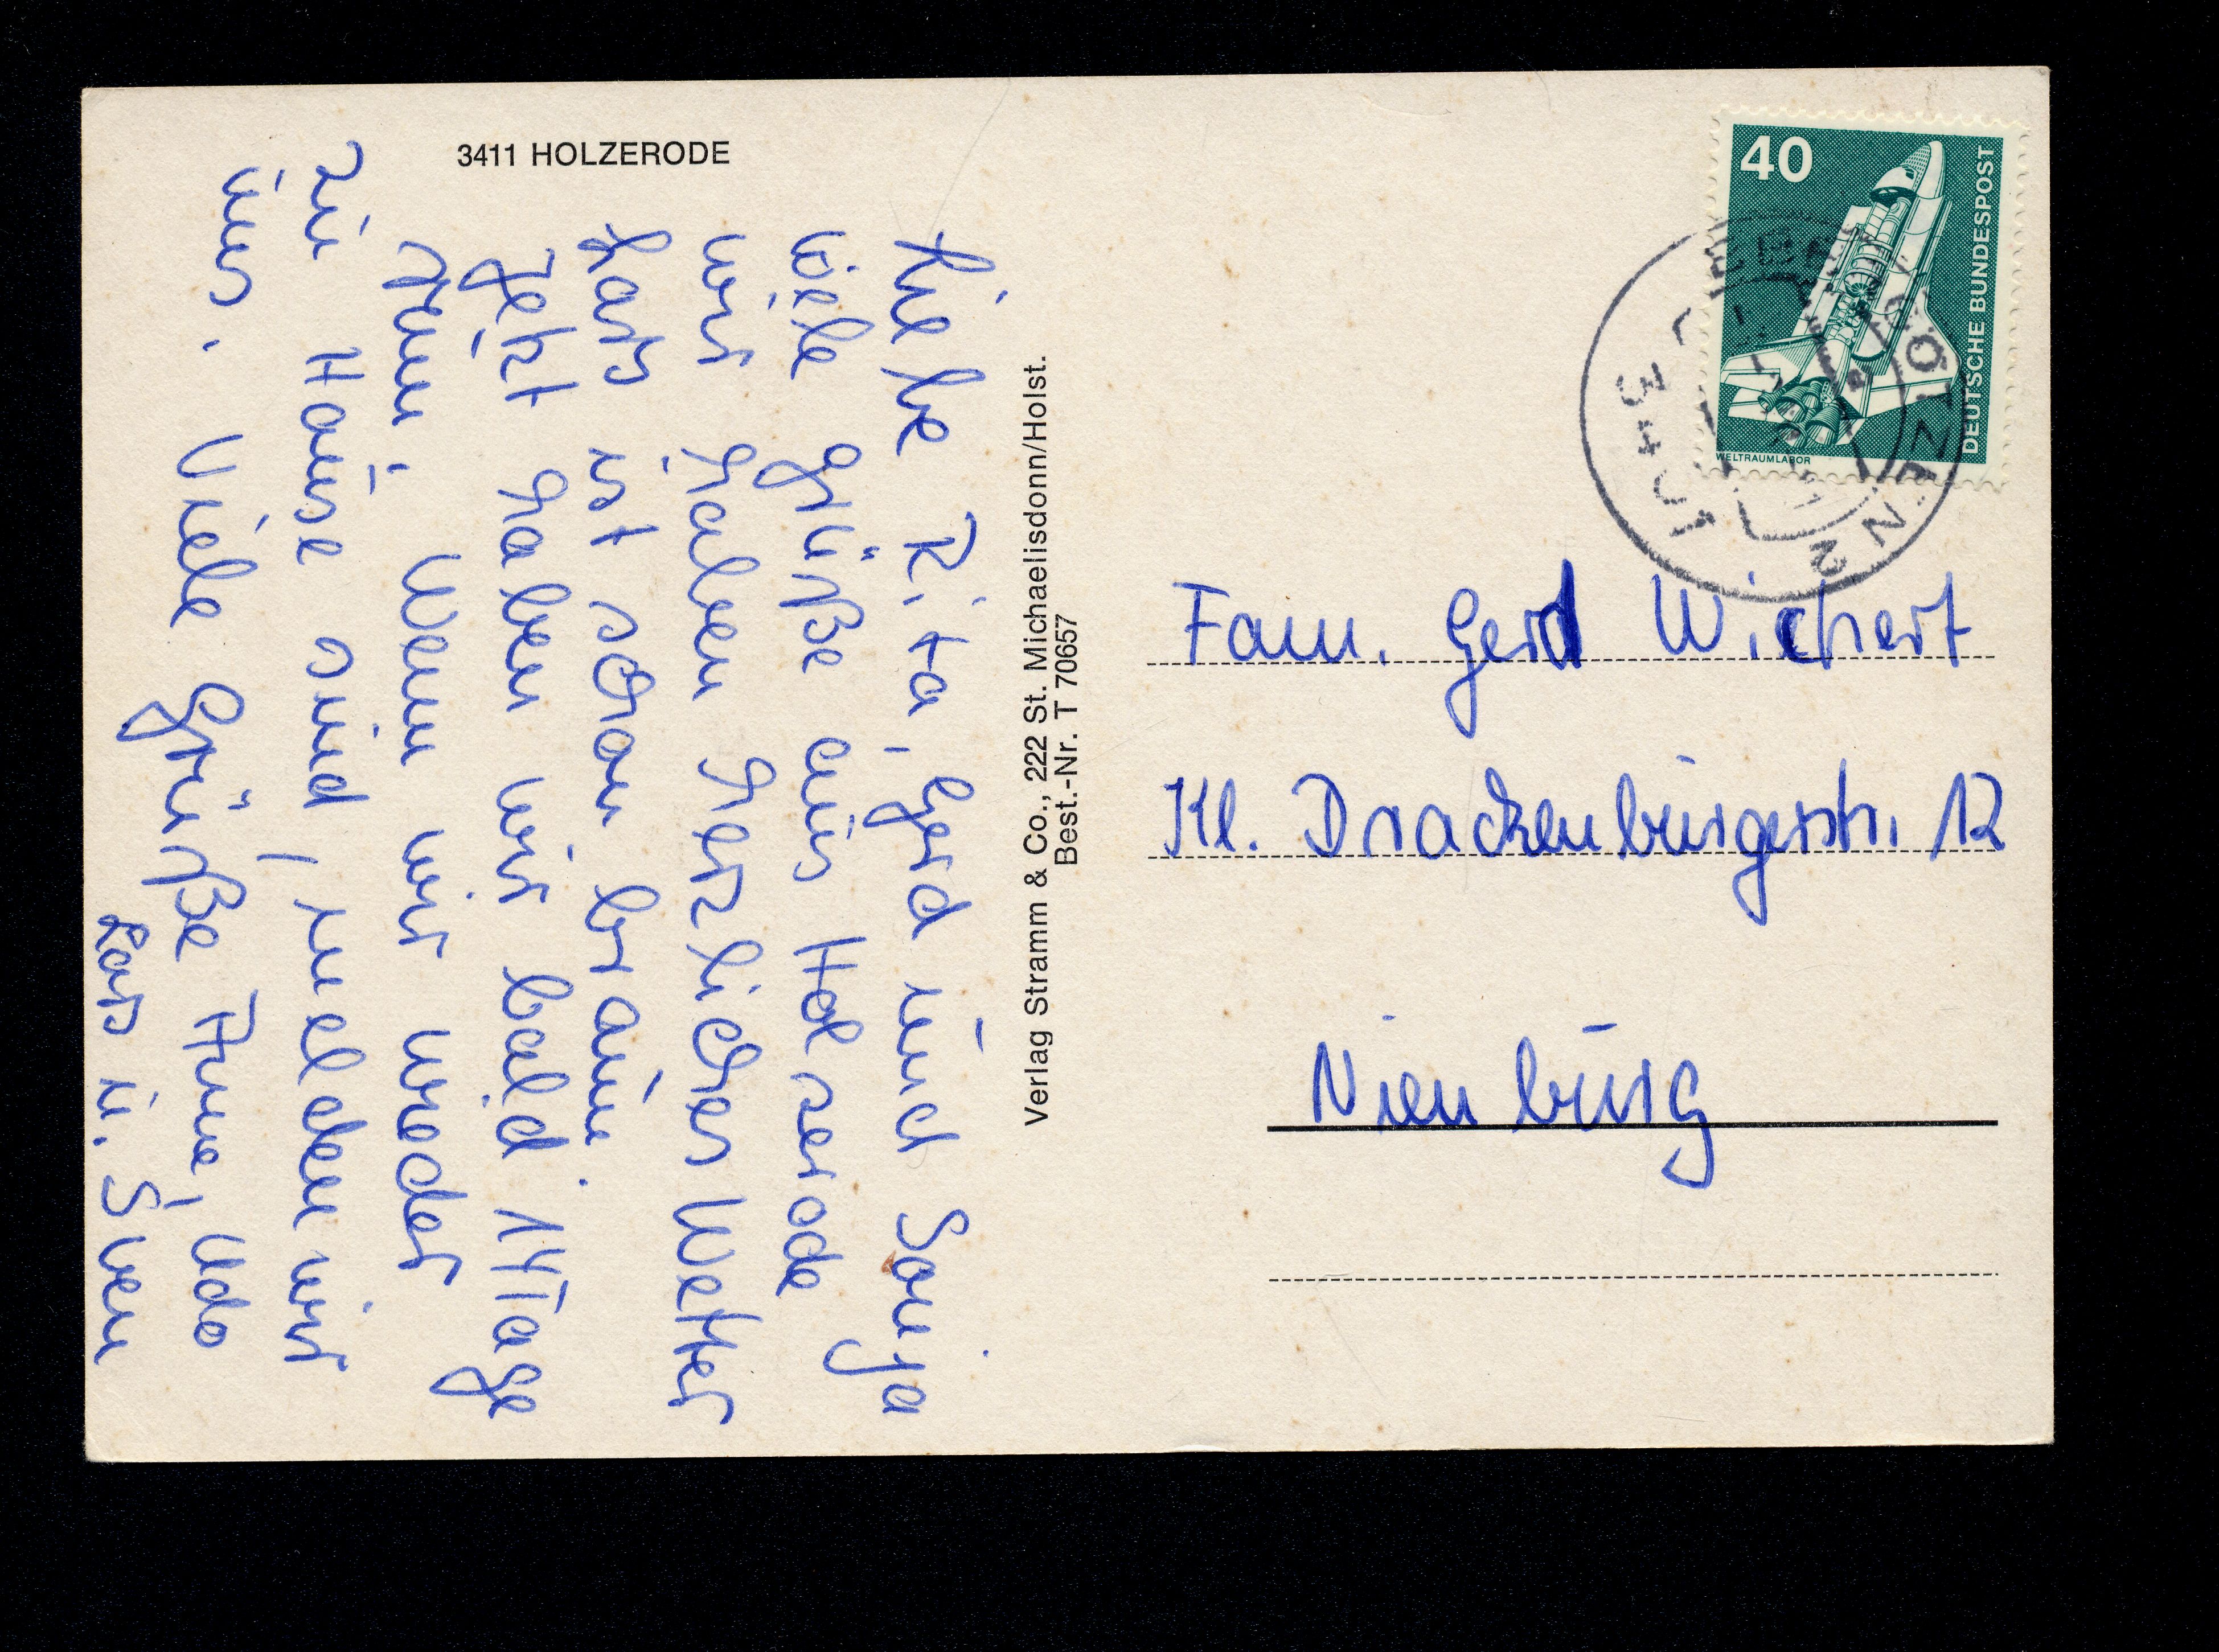 3411 HOLZERODE
Liebe Rita, Gerd und Sonja
viele Grüße aus Holzerode
wir haben herzliches Wetter
Lars ist schon braun.
Jetzt haben wir bald 14 Tage
rum. Wenn wir wieder
zu Hause sind, melden wir
uns. Viele Grüße Anne, Udo
Lars u. Sven
Verlag Stramm & Co., 222 St. Michaelisdonn/Holst.
Best.-Nr. T 70657
40
DEUTSCHE BUNDESPOST
WELTRAUMLABOR
Fam. Gerd Wichert
Kl. Drackenburgerstr. 12
Nienburg